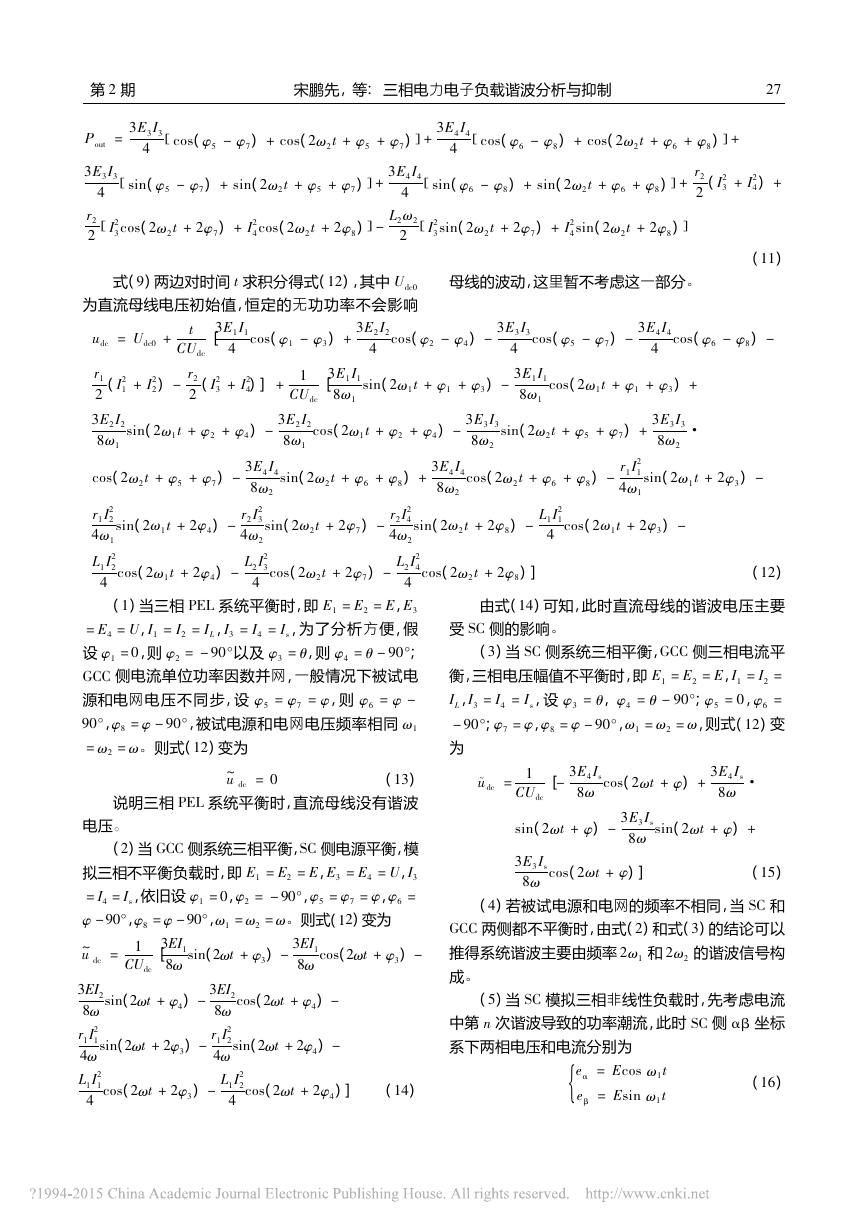 第 2 期 宋鹏先, 等: 三相电力电子负载谐波分析与抑制 27
P_out = 3E₃I₃/4 [cos(φ₅ − φ₇) + cos(2ω₂t + φ₅ + φ₇)] + 3E₄I₄/4 [cos(φ₆ − φ₈) + cos(2ω₂t + φ₆ + φ₈)] +
3E₃I₃/4 [sin(φ₅ − φ₇) + sin(2ω₂t + φ₅ + φ₇)] + 3E₄I₄/4 [sin(φ₆ − φ₈) + sin(2ω₂t + φ₆ + φ₈)] + r₂/2 (I₃² + I₄²) +
r₂/2 [I₃²cos(2ω₂t + 2φ₇) + I₄²cos(2ω₂t + 2φ₈)] − L₂ω₂/2 [I₃²sin(2ω₂t + 2φ₇) + I₄²sin(2ω₂t + 2φ₈)]
(11)
式(9)两边对时间 t 求积分得式(12),其中 U_dc0
为直流母线电压初始值,恒定的无功功率不会影响
母线的波动,这里暂不考虑这一部分。
u_dc = U_dc0 + t/CU_dc [3E₁I₁/4 cos(φ₁ − φ₃) + 3E₂I₂/4 cos(φ₂ − φ₄) − 3E₃I₃/4 cos(φ₅ − φ₇) − 3E₄I₄/4 cos(φ₆ − φ₈) −
r₁/2 (I₁² + I₂²) − r₂/2 (I₃² + I₄²)] + 1/CU_dc [3E₁I₁/8ω₁ sin(2ω₁t + φ₁ + φ₃) − 3E₁I₁/8ω₁ cos(2ω₁t + φ₁ + φ₃) +
3E₂I₂/8ω₁ sin(2ω₁t + φ₂ + φ₄) − 3E₂I₂/8ω₁ cos(2ω₁t + φ₂ + φ₄) − 3E₃I₃/8ω₂ sin(2ω₂t + φ₅ + φ₇) + 3E₃I₃/8ω₂ ·
cos(2ω₂t + φ₅ + φ₇) − 3E₄I₄/8ω₂ sin(2ω₂t + φ₆ + φ₈) + 3E₄I₄/8ω₂ cos(2ω₂t + φ₆ + φ₈) − r₁I₁²/4ω₁ sin(2ω₁t + 2φ₃) −
r₁I₂²/4ω₁ sin(2ω₁t + 2φ₄) − r₂I₃²/4ω₂ sin(2ω₂t + 2φ₇) − r₂I₄²/4ω₂ sin(2ω₂t + 2φ₈) − L₁I₁²/4 cos(2ω₁t + 2φ₃) −
L₁I₂²/4 cos(2ω₁t + 2φ₄) − L₂I₃²/4 cos(2ω₂t + 2φ₇) − L₂I₄²/4 cos(2ω₂t + 2φ₈)] (12)
(1)当三相 PEL 系统平衡时,即 E₁ = E₂ = E,E₃
= E₄ = U,I₁ = I₂ = I_L,I₃ = I₄ = I_s,为了分析方便,假
设 φ₁ = 0,则 φ₂ = −90°以及 φ₃ = θ,则 φ₄ = θ − 90°;
GCC 侧电流单位功率因数并网,一般情况下被试电
源和电网电压不同步,设 φ₅ = φ₇ = φ,则 φ₆ = φ −
90°,φ₈ = φ − 90°,被试电源和电网电压频率相同 ω₁
= ω₂ = ω。则式(12)变为
ũ_dc = 0 (13)
说明三相 PEL 系统平衡时,直流母线没有谐波
电压。
(2)当 GCC 侧系统三相平衡,SC 侧电源平衡,模
拟三相不平衡负载时,即 E₁ = E₂ = E,E₃ = E₄ = U,I₃
= I₄ = I_s,依旧设 φ₁ = 0,φ₂ = −90°,φ₅ = φ₇ = φ,φ₆ =
φ − 90°,φ₈ = φ − 90°,ω₁ = ω₂ = ω。则式(12)变为
ũ_dc = 1/CU_dc [3EI₁/8ω sin(2ωt + φ₃) − 3EI₁/8ω cos(2ωt + φ₃) −
3EI₂/8ω sin(2ωt + φ₄) − 3EI₂/8ω cos(2ωt + φ₄) −
r₁I₁²/4ω sin(2ωt + 2φ₃) − r₁I₂²/4ω sin(2ωt + 2φ₄) −
L₁I₁²/4 cos(2ωt + 2φ₃) − L₁I₂²/4 cos(2ωt + 2φ₄)] (14)
由式(14)可知,此时直流母线的谐波电压主要
受 SC 侧的影响。
(3)当 SC 侧系统三相平衡,GCC 侧三相电流平
衡,三相电压幅值不平衡时,即 E₁ = E₂ = E,I₁ = I₂ =
I_L,I₃ = I₄ = I_s,设 φ₃ = θ, φ₄ = θ − 90°;φ₅ = 0,φ₆ =
−90°;φ₇ = φ,φ₈ = φ − 90°,ω₁ = ω₂ = ω,则式(12)变
为
ũ_dc = 1/CU_dc [− 3E₄I_s/8ω cos(2ωt + φ) + 3E₄I_s/8ω ·
sin(2ωt + φ) − 3E₃I_s/8ω sin(2ωt + φ) +
3E₃I_s/8ω cos(2ωt + φ)] (15)
(4)若被试电源和电网的频率不相同,当 SC 和
GCC 两侧都不平衡时,由式(2)和式(3)的结论可以
推得系统谐波主要由频率 2ω₁ 和 2ω₂ 的谐波信号构
成。
(5)当 SC 模拟三相非线性负载时,先考虑电流
中第 n 次谐波导致的功率潮流,此时 SC 侧 αβ 坐标
系下两相电压和电流分别为
{e_α = Ecos ω₁t
e_β = Esin ω₁t (16)
?1994-2015 China Academic Journal Electronic Publishing House. All rights reserved. http://www.cnki.net